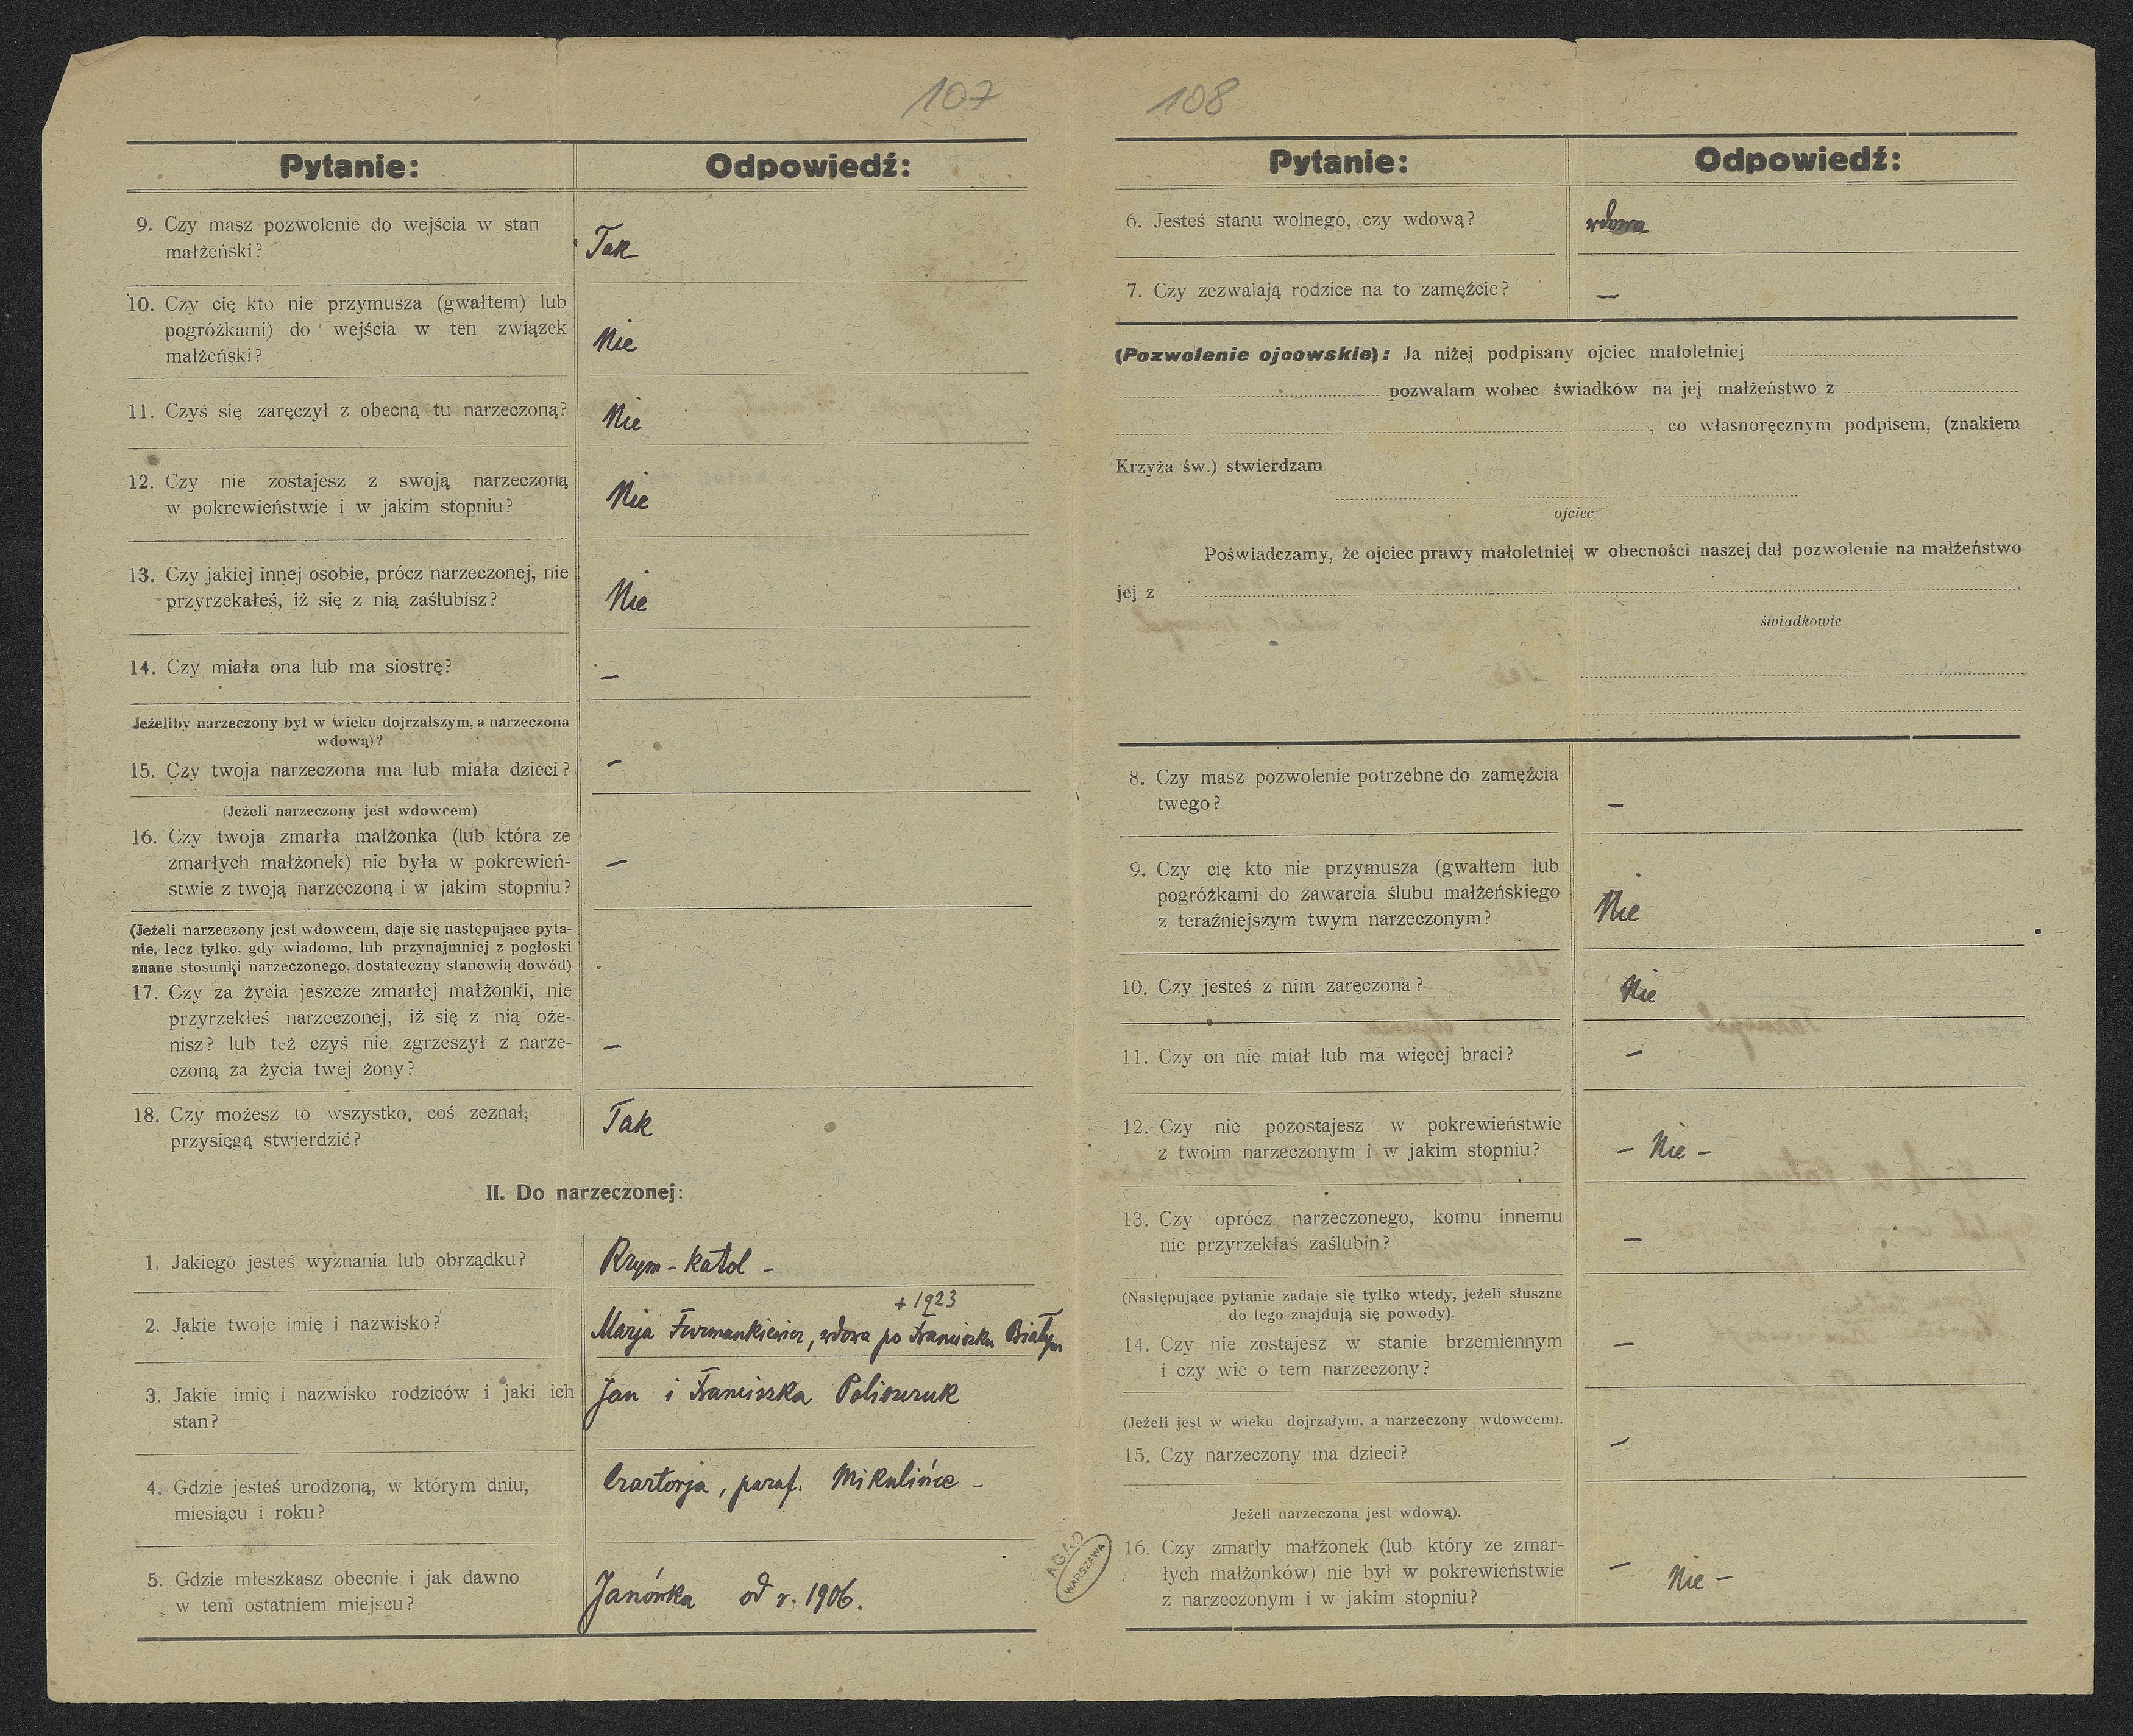 107
Pytanie:
Odpowiedź:
9. Czy masz pozwolenie do wejścia w stan
małżeński?
Tak
10. Czy cię kto nie przymusza (gwałtem) lub
pogróżkami) do wejścia w ten związek
małżeński?
Nie
11. Czyś się zaręczył z obecną tu narzeczoną?
Nie
12. Czy nie zostajesz z swoją narzeczoną
w pokrewieństwie i w jakim stopniu?
Nie
13. Czy jakiej innej osobie, prócz narzeczonej, nie
przyrzekałeś, iż się z nią zaślubisz?
Nie
14. Czy miała ona lub ma siostrę?
–
Jeżeliby narzeczony był w wieku dojrzalszym, a narzeczona
wdową)?
15. Czy twoja narzeczona ma lub miała dzieci?
–
(Jeżeli narzeczony jest wdowcem)
16. Czy twoja zmarła małżonka (lub która ze
zmarłych małżonek) nie była w pokrewień-
stwie z twoją narzeczoną i w jakim stopniu?
–
(Jeżeli narzeczony jest wdowcem, daje się następujące pyta-
nie, lecz tylko, gdy wiadomo, lub przynajmniej z pogłoski
znane stosunki narzeczonego, dostateczny stanowią dowód)
17. Czy za życia jeszcze zmarłej małżonki, nie
przyrzekłeś narzeczonej, iż się z nią oże-
nisz? lub też czyś nie zgrzeszył z narze-
czoną za życia twej żony?
–
18. Czy możesz to wszystko, coś zeznał,
przysięgą stwierdzić?
Tak
II. Do narzeczonej:
1. Jakiego jesteś wyznania lub obrządku?
Rzym-katol –
2. Jakie twoje imię i nazwisko?
+ 1923
Marja Furmankiewicz, wdowa po Franciszku Białym
3. Jakie imię i nazwisko rodziców i jaki ich
stan?
Jan i Franciszka Poliszczuk
4. Gdzie jesteś urodzoną, w którym dniu,
miesiącu i roku?
Czartorja, paraf. Mikulińce –
5. Gdzie mieszkasz obecnie i jak dawno
w tem ostatniem miejscu?
Janówka od r. 1906.
AGAD
WARSZAWA
108
Pytanie:
Odpowiedź:
6. Jesteś stanu wolnego, czy wdową?
wdowa
7. Czy zezwalają rodzice na to zamężcie?
–
(Pozwolenie ojcowskie): Ja niżej podpisany ojciec małoletniej
pozwalam wobec świadków na jej małżeństwo z
, co własnoręcznym podpisem, (znakiem
Krzyża św.) stwierdzam
ojciec
Poświadczamy, że ojciec prawy małoletniej w obecności naszej dał pozwolenie na małżeństwo
jej z
świadkowie
8. Czy masz pozwolenie potrzebne do zamężcia
twego?
–
9. Czy cię kto nie przymusza (gwałtem lub
pogróżkami do zawarcia ślubu małżeńskiego
z teraźniejszym twym narzeczonym?
Nie
10. Czy jesteś z nim zaręczona?
Nie
11. Czy on nie miał lub ma więcej braci?
–
12. Czy nie pozostajesz w pokrewieństwie
z twoim narzeczonym i w jakim stopniu?
– Nie –
13. Czy oprócz narzeczonego, komu innemu
nie przyrzekłaś zaślubin?
–
(Następujące pytanie zadaje się tylko wtedy, jeżeli słuszne
do tego znajdują się powody).
14. Czy nie zostajesz w stanie brzemiennym
i czy wie o tem narzeczony?
–
(Jeżeli jest w wieku dojrzałym, a narzeczony wdowcem).
15. Czy narzeczony ma dzieci?
–
Jeżeli narzeczona jest wdową).
16. Czy zmarły małżonek (lub który ze zmar-
łych małżonków) nie był w pokrewieństwie
z narzeczonym i w jakim stopniu?
– Nie –